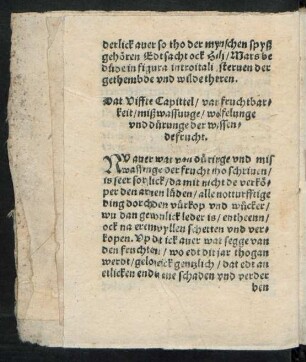 derlick auer so tho der mynschen spyß
gehören Edt sacht ock Hilj / Mars be
düde in figura introitali, sternen der
gethembde vnd wilde theren.
Dat Viffte Capittel / van fruchtbar-
keit / mißwassunge / wösselunge
vnd dürunge der wissen-
defrucht.
NV auer wat van dürīnge vnd mis
wassynge der frucht tho schriuen /
is seer sorglick / da mit nicht de verkö-
per den armen lüden / alle notturftige
ding dorch den vürkop vnd wücker /
wu dan gewonlick leder is / enthcenn /
ock na erem vyllen schetten vnd ver-
kopen. Vp dit ick auer wat segge van
den fruchten / wo edt dit jar thogan
werdt / gelouick gentzlich / dat edt an
etlicken enden ane schaden vnd verder
ben